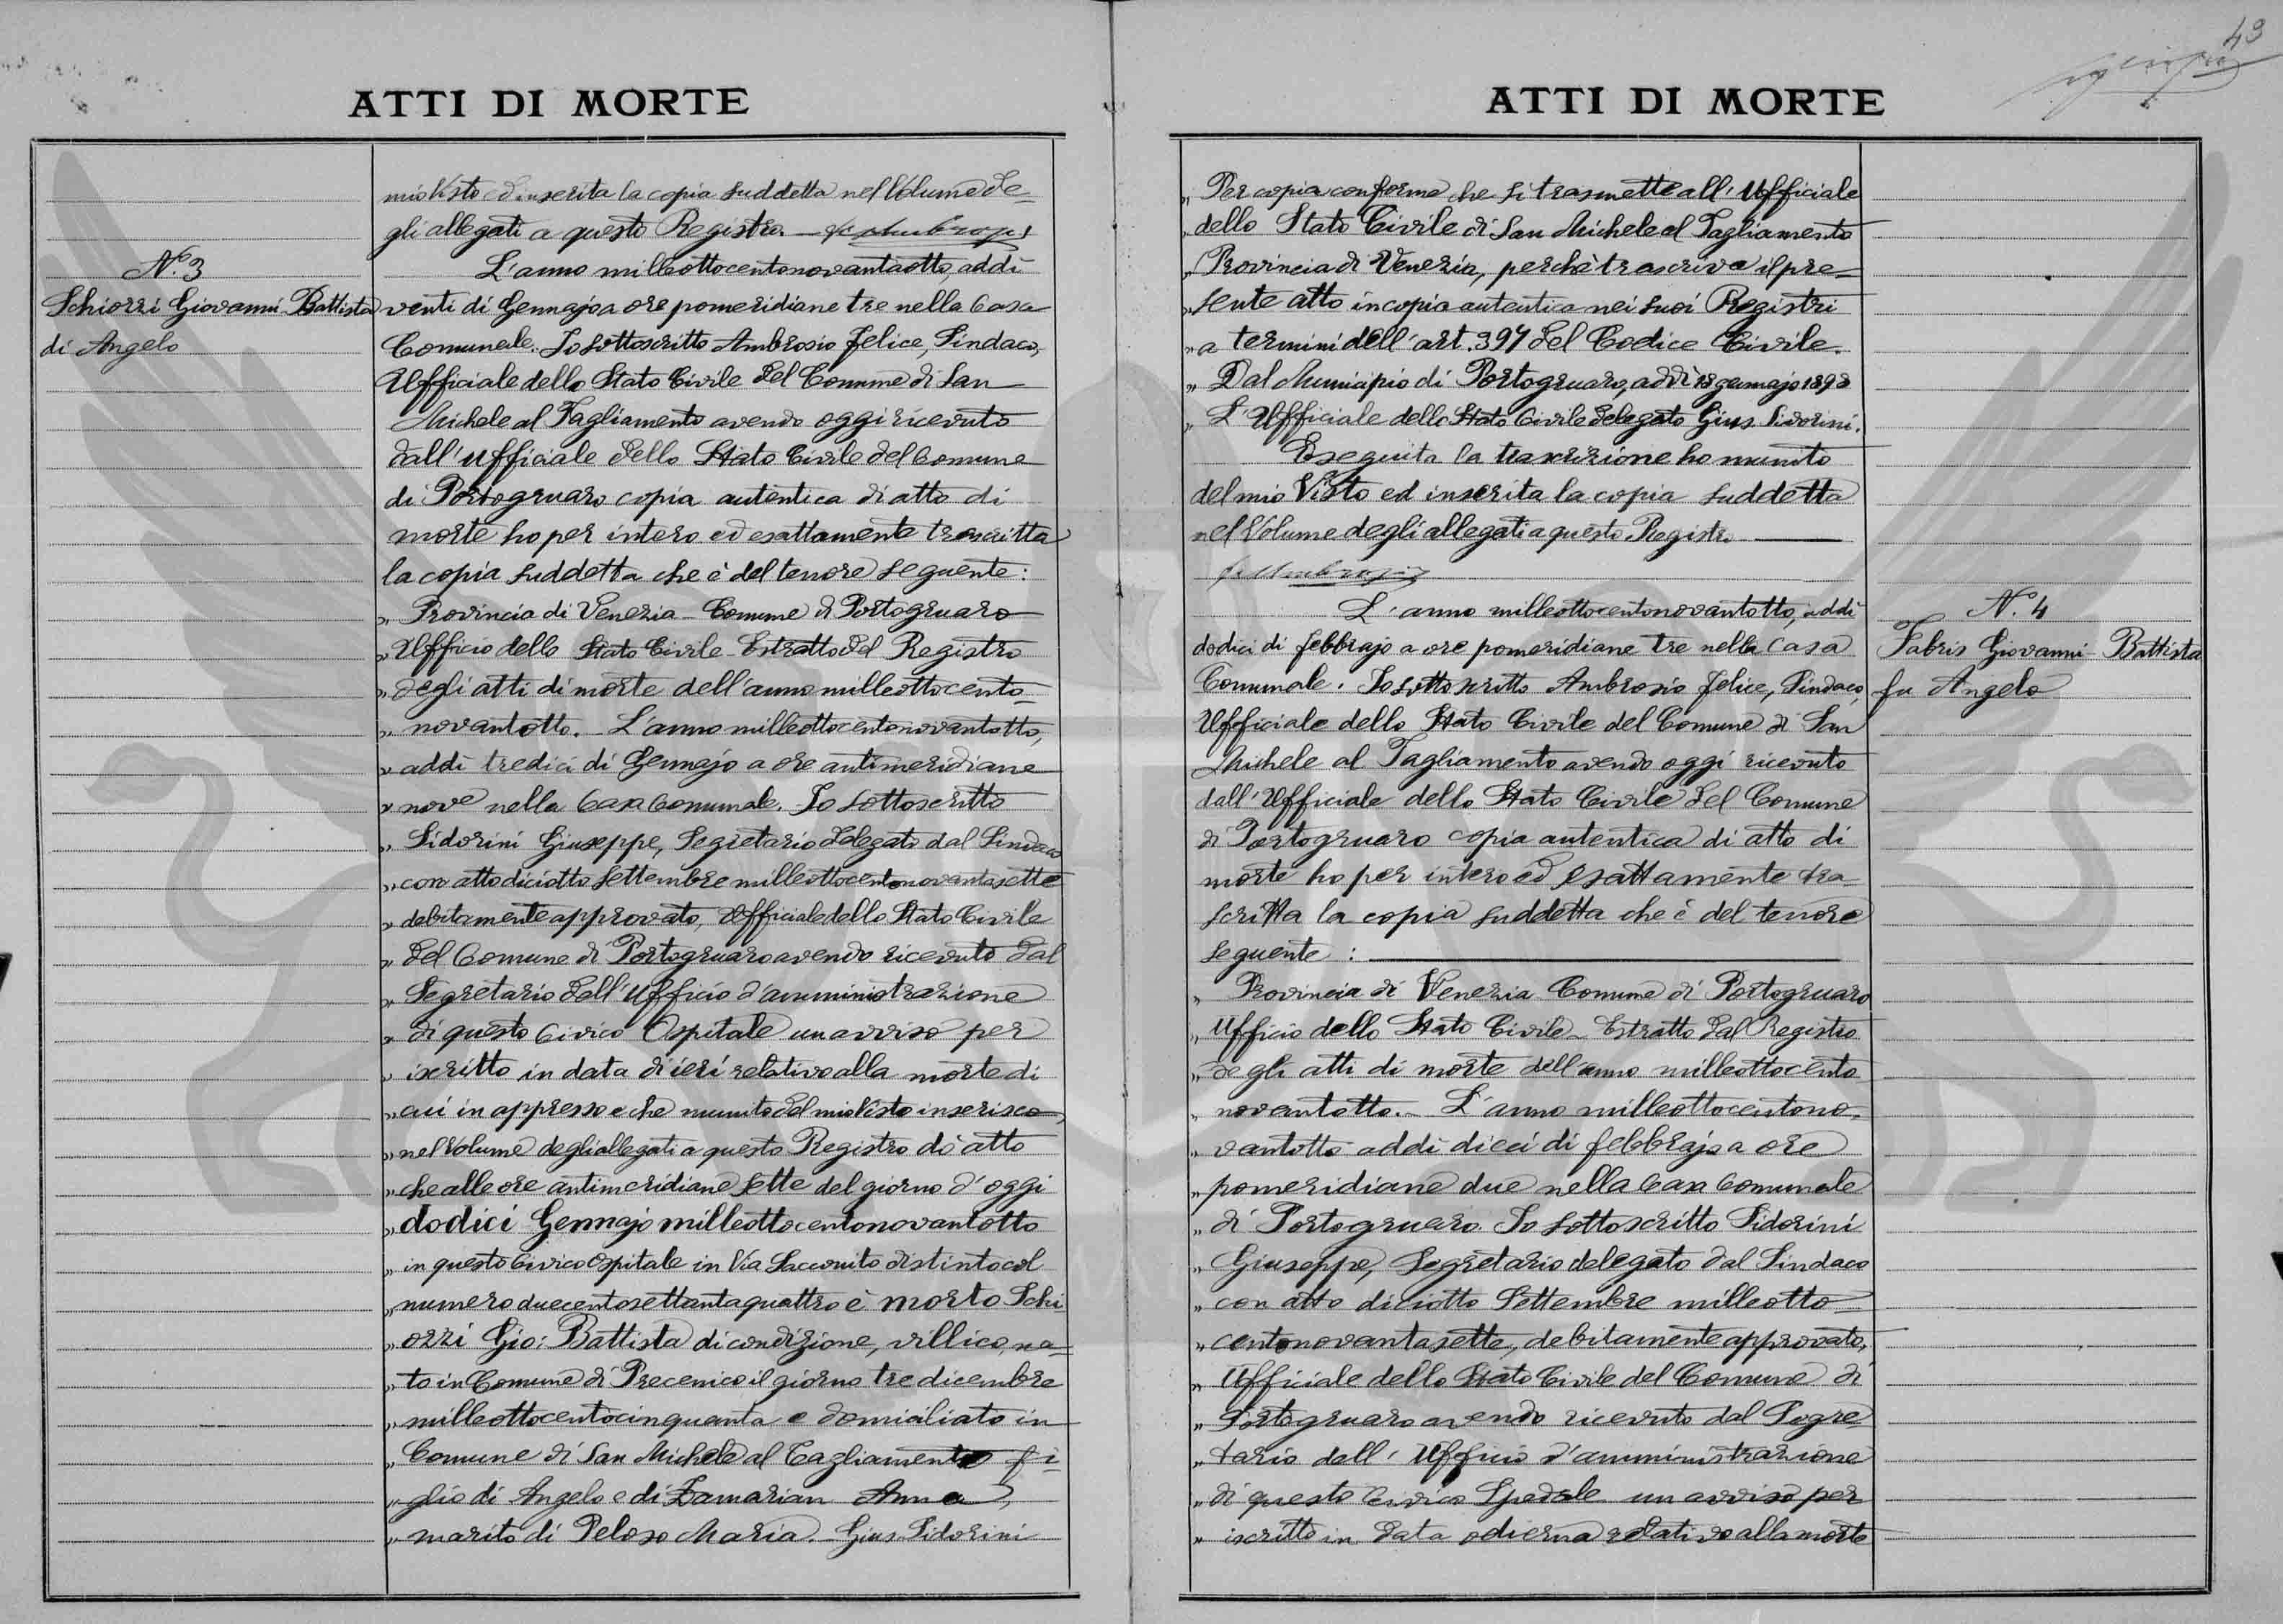 ATTI DI MORTE
mio Visto ed inserita la copia suddetta nel Volume de=
gli allegati a questo Registro. — F. Ambrosio
N.° 3
Schiozzi Giovanni Battista
di Angelo
L'anno milleottocentonovantaotto, addì
venti di Gennajo a ore pomeridiane tre nella Casa
Comunale. Io sottoscritto Ambrosio Felice, Sindaco,
Ufficiale dello Stato Civile del Comune di San
Michele al Tagliamento avendo oggi ricevuto
dall'Ufficiale dello Stato Civile del Comune
di Portogruaro copia autentica di atto di
morte ho per intero ed esattamente trascritta
la copia suddetta che è del tenore seguente:
„ Provincia di Venezia – Comune di Portogruaro
„ Ufficio dello Stato Civile – Estratto del Registro
„ degli atti di morte dell'anno milleottocento=
„ novantotto. – L'anno milleottocentonovantotto,
„ addì tredici di Gennajo a ore antimeridiane
„ nove nella Casa Comunale. Io sottoscritto
„ Sidorini Giuseppe, Segretario delegato dal Sindaco
„ con atto diciotto Settembre milleottocentonovantasette
„ debitamente approvato, Ufficiale dello Stato Civile
„ del Comune di Portogruaro avendo ricevuto dal
„ Segretario dell'Ufficio d'amministrazione
„ di questo Civico Ospitale un avviso per
„ iscritto in data di ieri relativo alla morte di
„ cui in appresso e che munito del mio Visto inserisco
„ nel Volume degli allegati a questo Registro dò atto
„ che alle ore antimeridiane sette del giorno d'oggi
„ dodici Gennajo milleottocentonovantotto
„ in questo Civico Ospitale in Via distinto col
„ numero duecentosettantaquattro è morto Schi
„ ozzi Gio: Battista di condizione, villico, na=
„ to in Comune di Precenico il giorno tre dicembre
„ milleottocentocinquanta e domiciliato in
„ Comune di San Michele al Tagliamento fi=
„ glio di Angelo e di Zamarian Anna,
„ marito di Peloso Maria. – Gius. Sidorini
49
ATTI DI MORTE
„ Per copia conforme che si trasmette all'Ufficiale
„ dello Stato Civile di San Michele al Tagliamento
„ Provincia di Venezia, perchè trascriva il pre=
„ sente atto in copia autentica nei suoi Registri
„ a termini dell'art. 397 del Codice Civile.
„ Dal Municipio di Portogruaro, addì 18 gennajo 1898
„ L'Ufficiale dello Stato Civile delegato Gius. Sidorini.
Eseguita la trascrizione ho munito
del mio Visto ed inserita la copia suddetta
nel Volume degli allegati a questo Registro
F. Ambrosio
N.° 4
Fabris Giovanni Battista
fu Angelo
L'anno milleottocentonovantotto, addì
dodici di febbrajo a ore pomeridiane tre nella Casa
Comunale. Io sottoscritto Ambrosio Felice, Sindaco,
Ufficiale dello Stato Civile del Comune di San
Michele al Tagliamento avendo oggi ricevuto
dall'Ufficiale dello Stato Civile del Comune
di Portogruaro copia autentica di atto di
morte ho per intero ed esattamente tra=
scritta la copia suddetta che è del tenore
seguente:
„ Provincia di Venezia Comune di Portogruaro
„ Ufficio dello Stato Civile – Estratto dal Registro
„ degli atti di morte dell'anno milleottocento
„ novantotto. – L'anno milleottocentono=
„ vantotto addì dieci di febbrajo a ore
„ pomeridiane due nella Casa Comunale
„ di Portogruaro. Io sottoscritto Sidorini
„ Giuseppe, Segretario delegato dal Sindaco
„ con atto diciotto Settembre milleotto=
„ centonovantasette, debitamente approvato,
„ Ufficiale dello Stato Civile del Comune di
„ Portogruaro avendo ricevuto dal Segre=
„ tario dell'Ufficio d'amministrazione
„ di questo Civico Spedale un avviso per
„ iscritto in data odierna relativo alla morte